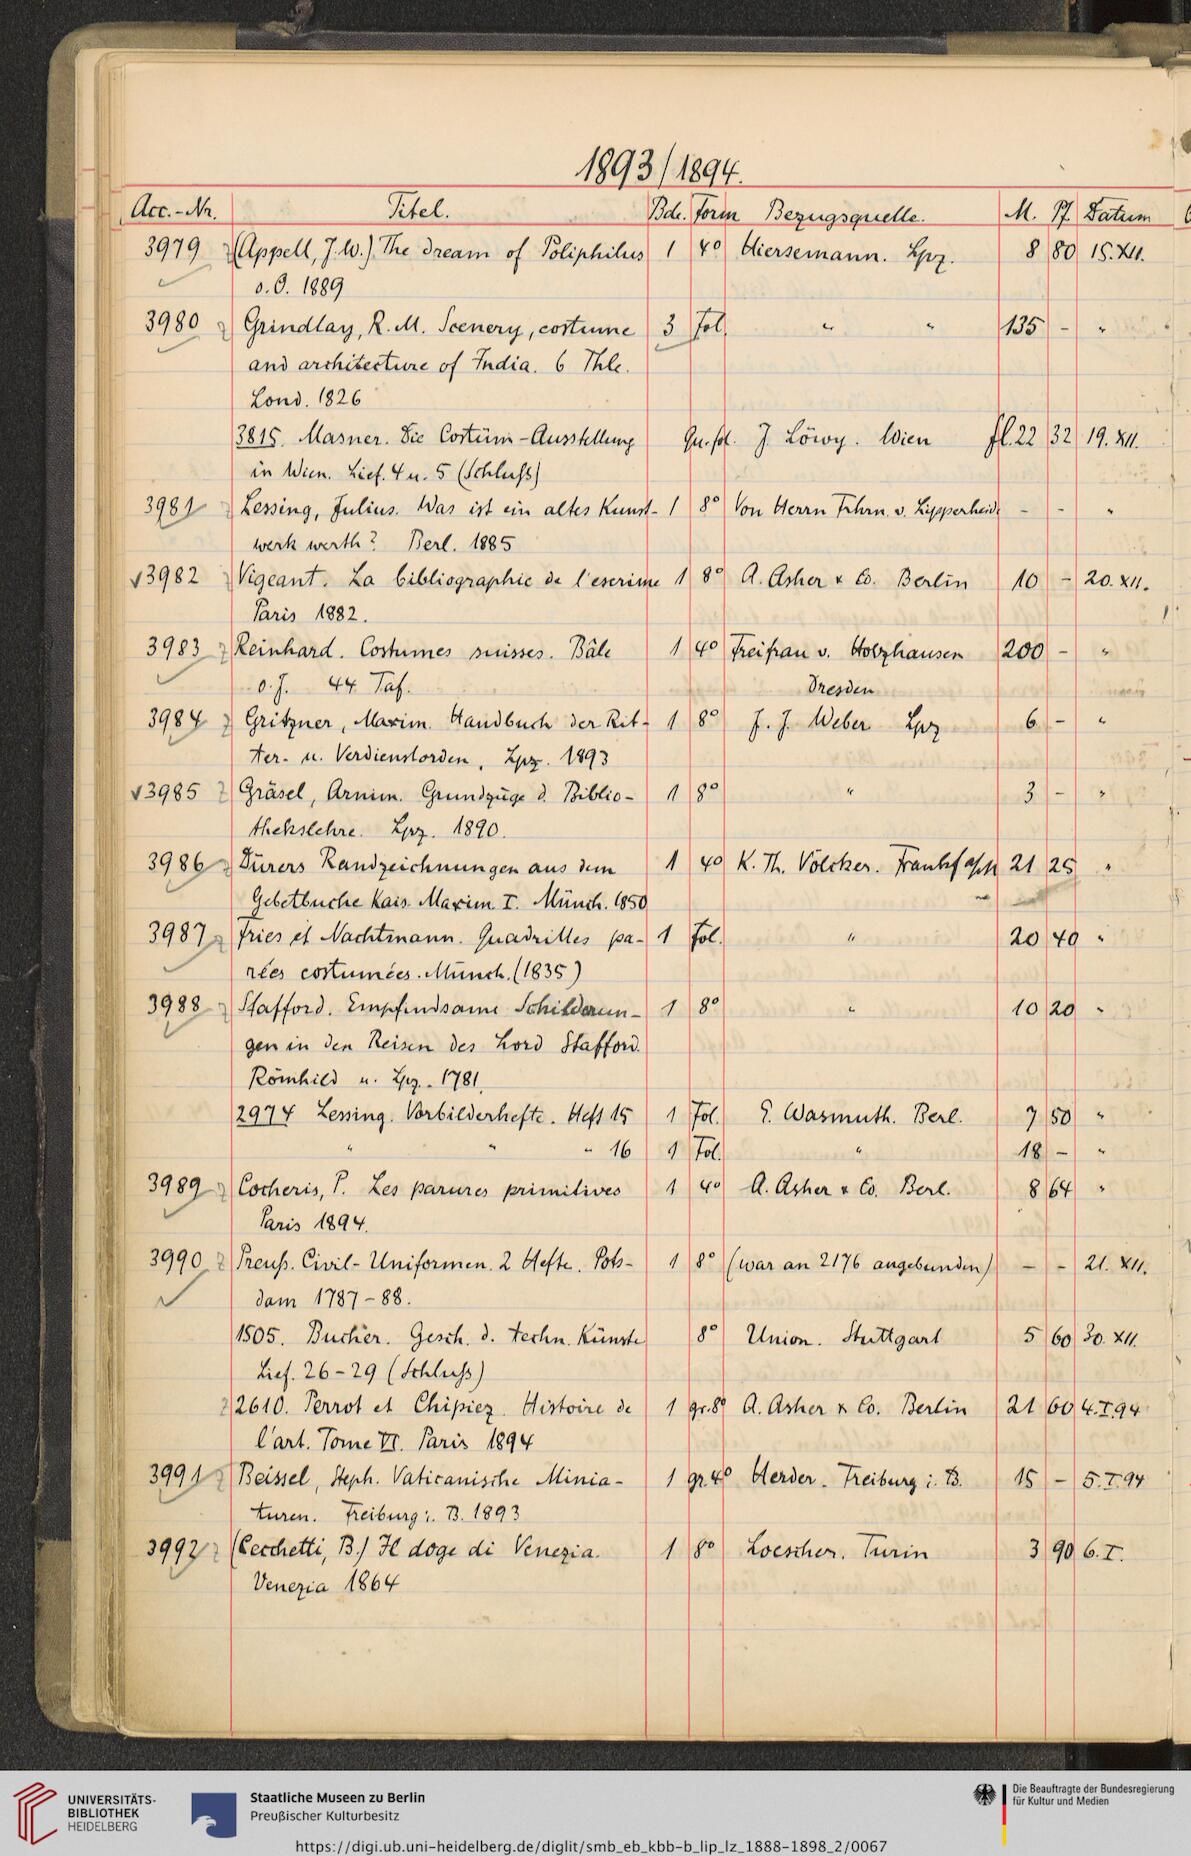 1893/1894.
Acc.-Nr. Titel. Bde. Form Bezugsquelle. M. Pf. Datum
3979 (Appell, J.W.) The dream of Poliphilus 1 4° Hiersemann. Lpz. 8 80 15.XII.
o.O. 1889
3980 Grindlay, R.M. Scenery, costume 3 Fol. " " 135 - "
and architecture of India. 6 Thle.
Lond. 1826
3815. Masner. Die Costüm-Ausstellung Qu.fol. J. Löwy. Wien fl.22 32 19.XII.
in Wien. Lief. 4 u. 5 (Schluß)
3981 Lessing, Julius. Was ist ein altes Kunst- 1 8° Von Herrn Frhrn. v. Lipperheide - - "
werk werth? Berl. 1885
√3982 Vigeant. La bibliographie de l'escrime 1 8° A. Asher & Co. Berlin 10 - 20.XII.
Paris 1882.
3983 Reinhard. Costumes suisses. Bâle 1 4° Freifrau v. Holzhausen 200 - "
o.J. 44 Taf. Dresden
3984 Gritzner, Maxim. Handbuch der Rit- 1 8° J. J. Weber Lpz 6 - "
ter- u. Verdienstorden. Lpz. 1893
√3985 Gräsel, Arnim. Grundzüge d. Biblio- 1 8° " 3 - "
thekslehre. Lpz. 1890.
3986 Dürers Randzeichnungen aus dem 1 4° K. Th. Völcker. Frankf a/M 21 25 "
Gebetbuche Kais. Maxim. I. Münch. 1850
3987 Fries et Nachtmann. Quadrilles pa- 1 Fol. " 20 40 "
rées costumées. Münch. (1835)
3988 Stafford. Empfindsame Schilderun- 1 8° " 10 20 "
gen in den Reisen des Lord Stafford.
Römhild u. Lpz. 1781.
2974 Lessing. Vorbilderhefte. Heft 15 1 Fol. E. Wasmuth. Berl. 7 50 "
" " " 16 1 Fol. " 18 - "
3989 Cocheris, P. Les parures primitives 1 4° A. Asher & Co. Berl. 8 64 "
Paris 1894.
3990 Preuß. Civil-Uniformen. 2 Hefte. Pots- 1 8° (war an 2176 angebunden) - - 21.XII.
dam 1787-88.
1505. Bucher. Gesch. d. techn. Künste 8° Union. Stuttgart 5 60 30.XII.
Lief. 26-29 (Schluß)
2610. Perrot et Chipiez. Histoire de 1 gr.8° A. Asher & Co. Berlin 21 60 4.I.94
l'art. Tome VI. Paris 1894
3991 Beissel, Steph. Vaticanische Minia- 1 gr.4° Herder. Freiburg i. B. 15 - 5.I.94
turen. Freiburg i. B. 1893
3992 (Cecchetti, B.) Il doge di Venezia. 1 8° Loescher. Turin 3 90 6.I.
Venezia 1864
UNIVERSITÄTS-
BIBLIOTHEK
HEIDELBERG
Staatliche Museen zu Berlin
Preußischer Kulturbesitz
Die Beauftragte der Bundesregierung
für Kultur und Medien
https://digi.ub.uni-heidelberg.de/diglit/smb_eb_kbb-b_lip_lz_1888-1898_2/0067